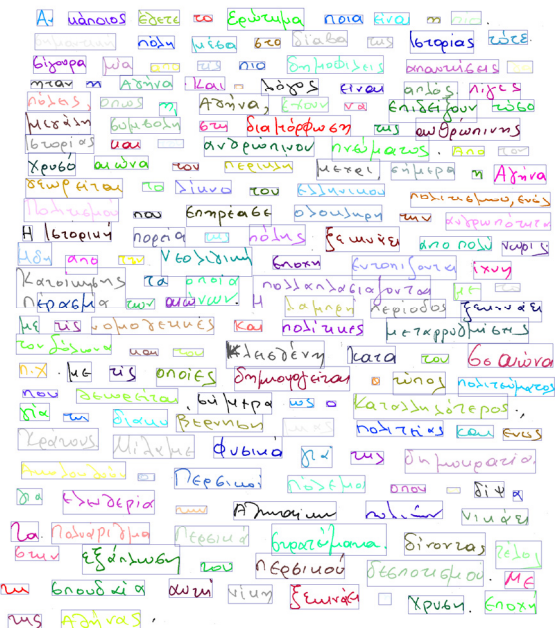 Αν κάποιος έθετε το ερώτημα ποια είναι η πιο
σημαντική πόλη μέσα στο διάβα της ιστορίας τότε
σίγουρα μια από τις πιο δημοφιλείς απαντήσεις
ήταν η Αθήνα και ο λόγος είναι απλός λίγες
πόλεις, όπως η Αθήνα, έχουν να επιδείξουν τόσο
μεγάλη συμβολή στη διαμόρφωση της ανθρώπινης
ιστορίας και ανθρώπινου πνεύματος. Από τον
χρυσό αιώνα του Περικλή μέχρι σήμερα η Αθήνα
θεωρείται το λίκνο του ελληνικού πολιτισμού, ενός
πολιτισμού που επηρέασε ολόκληρη την ανθρωπότητα
Η ιστορική πορεία της πόλης ξεκινάει από πολύ νωρίς
ήδη από την Νεολιθική εποχή εντοπίζονται ίχνη
κατοίκησης τα οποία πολλαπλασιάζονται με το
πέρασμα των αιώνων. Η λαμπρή περίοδος ξεκινάει
με τις νομοθετικές και πολιτικές μεταρρυθμίσεις
του Σόλωνα και του Κλεισθένη κατά τον 6ο αιώνα
π.χ. με τις οποίες δημιουργείται ο τύπος πολιτεύματος
που θεωρείται, σήμερα ως ο καταλληλότερος,
για την διακυβέρνηση μιας πολιτείας και ενός
κράτους Μιλάμε φυσικά για της δημοκρατία
Ακολουθούν οι Περσικοί πόλεμοι όπου η δίψα
για ελευθερία των Αθηναίων πολιτών νικάει
τα πολυάριθμα Περσικά στρατεύματα δίνοντας τέλος
στην εξάπλωση του περσικού δεσποτισμού. Με
τη σπουδαία αυτή νίκη ξεκινάει η χρυσή εποχή
της Αθήνας,